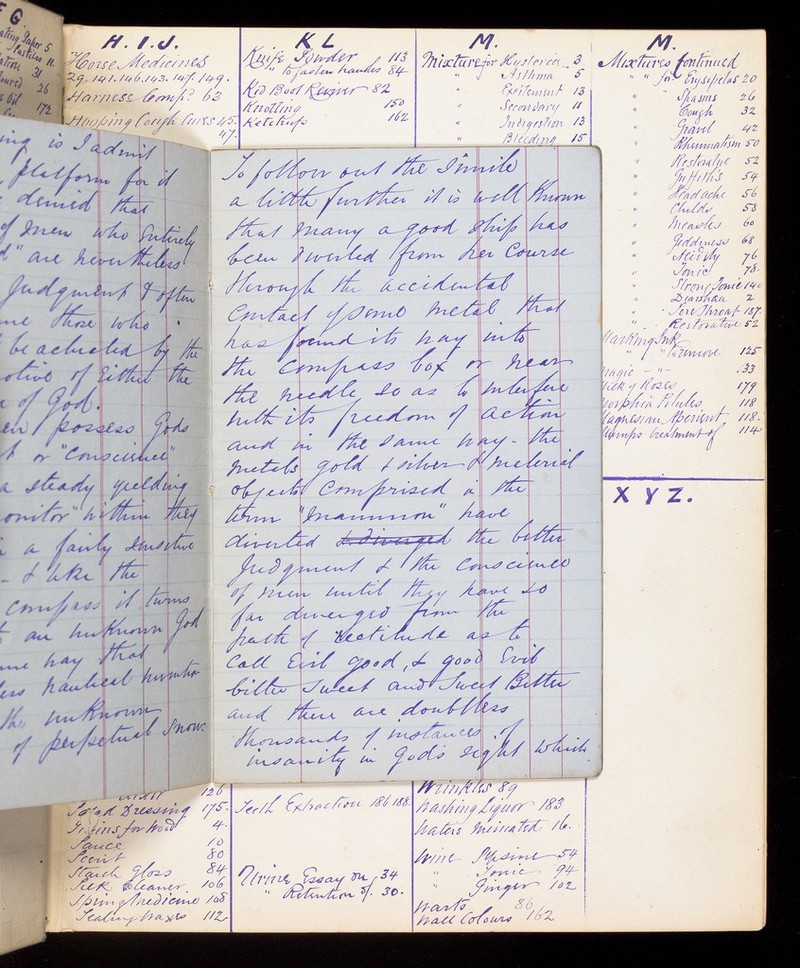 F G.
5
11
31
26
172
H. I. J.
Horse Medicines
29. 141. 146. 143. 147. 149.
Harness Comp? 63
Hooping Cough Cures 45.
47.
K L
Knife Powder 113
" to fasten handles 84
Kid Boot Reviver 82
Knotting 150
Ketchup 162
M.
Mixture for Hysteria 3
" Asthma 5
" Excitement 13
" Secondary 11
" Indigestion 13
" Bleeding 15
M.
Mixtures Continued
" " for Erysipelas 20
" Spasms 26
" Cough 32
" Gravel 42
" Rhumatism 50
" Restorative 52
" Griffith's 54
" Headache 56
" Childs 58
" Measles 60
" Giddeness 68
" Acidity 76
" Tonic 78.
" Strong Tonic 140
" Diarrhœa 2
" Sore Throat 157.
" Restorative 52
Marking Ink
" " to remove 125
Magic - " - 33
Milk of Roses 179
Morphia Pilules 118
Magnesian Aperient 118.
Mumps treatment of 114
X Y Z.
ing is I admit
platform for it
denied that
of men who Entirely
d" are nevertheless
Judgment & often
me those who
be actuated by the
motive of Either the
of God.
en possess Gods
or "Conscience"
a steady yielding
monitor" within they
a fairly sensitive
- & like the
compass it turns
an unknown God
me way that
less nautical invention
the unknown
of perpetual snow.
To follow out the Simile
a little further it is well Known
that many a good ship has
been diverted from her Course
through the accidental
Contact of some metal that
has found its way into
the Compass box or near
the needle, so as to interfere
with its freedom of action
and in the same way - the
metals gold & silver & material
objects Comprised in the
term "Mammon" have
diverted & diverged the better
Judgment & the Conscience
of men until they have so
far diverged from the
path of Rectitude as to
Call Evil good, & good Evil
bitter sweet and Sweet Bitter
and there are doubtless
thousands of instances of
insanity in God's sight which
126
Salad Dressing 175.
for Wood 4.
Sauce 10
Scent 80
Starch Gloss 84
Silk Cleaner. 106
Spring Medicine 108
Sealing waxes 112
Teeth Extraction 186 188.
Urine Essay on 34
" Retention of. 30.
Wrinkles 89
Washing Liquor 183
Waters Medicated 16.
Wine Pepsine 54
" Tonic 94
" Ginger 102
Warts 86
Wall Colours 162